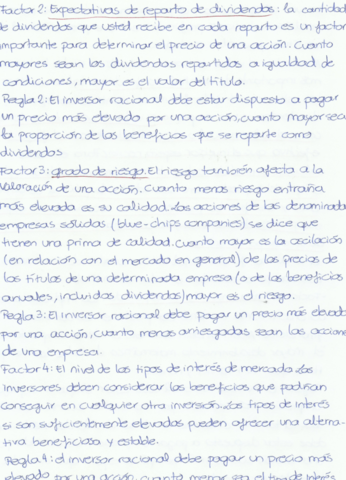 Factor 2: Expectativas de reparto de dividendos: la cantidad
de dividendos que usted recibe en cada reparto es un factor
importante para determinar el precio de una acción. Cuanto
mayores sean los dividendos repartidos a igualdad de
condiciones, mayor es el valor del título.
Regla 2: El inversor racional debe estar dispuesto a pagar
un precio más elevado por una acción, cuanto mayor sea
la proporción de los beneficios que se reparte como
dividendos
Factor 3: grado de riesgo. El riesgo también afecta a la
valoración de una acción. Cuanto menos riesgo entraña
más elevada es su calidad. Las acciones de las denominada
empresas sólidas (blue-chips companies) se dice que
tienen una prima de calidad. Cuanto mayor es la oscilación
(en relación con el mercado en general) de los precios de
los títulos de una determinada empresa (o de los beneficios
anuales, incluidos dividendos) mayor es el riesgo.
Regla 3: El inversor racional debe pagar un precio más elevado
por una acción, cuanto menos arriesgadas sean las accione
de una empresa.
Factor 4: El nivel de los tipos de interés de mercado. Los
inversores deben considerar los beneficios que podrían
conseguir en cualquier otra inversión. Los tipos de interés
si son suficientemente elevados pueden ofrecer una alterna-
tiva beneficiosa y estable.
Regla 4: el inversor racional debe pagar un precio más
elevado por una acción, cuanto menor sea el tipo de interés